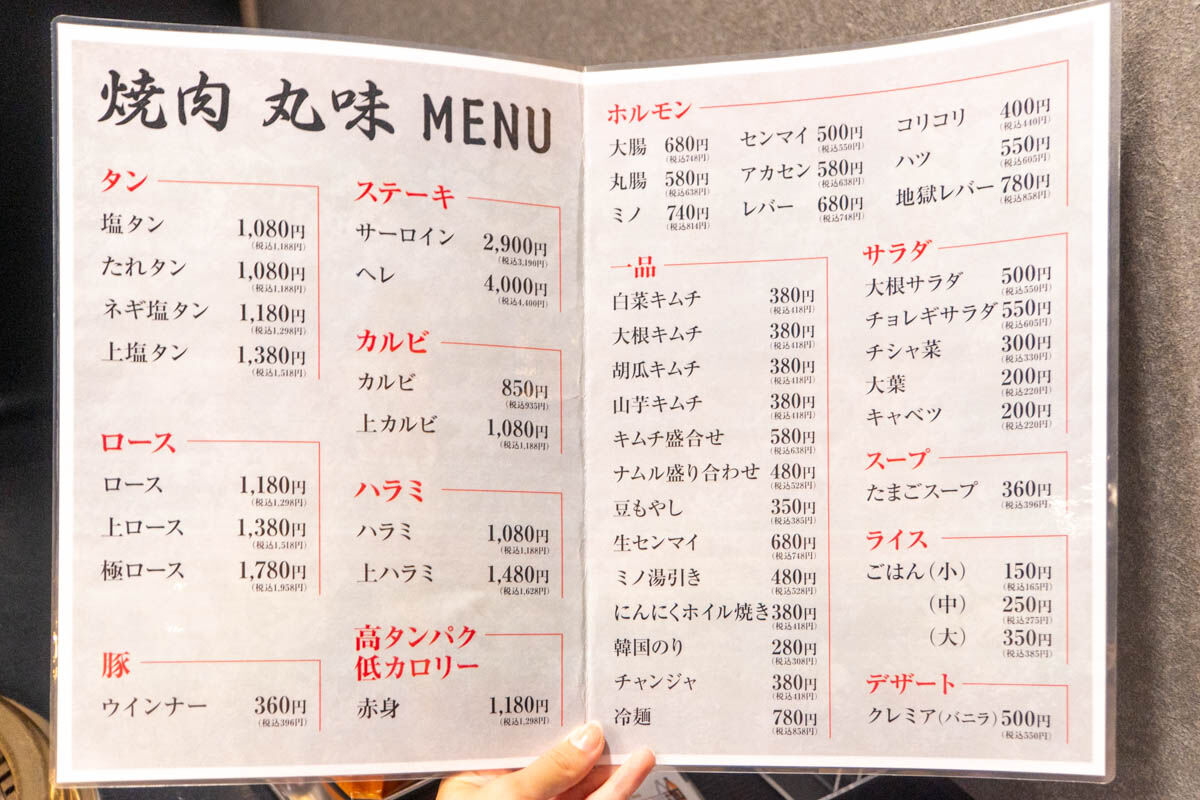 焼肉 丸味 MENU
タン
塩タン 1,080円
(税込1,188円)
たれタン 1,080円
(税込1,188円)
ネギ塩タン 1,180円
(税込1,298円)
上塩タン 1,380円
(税込1,518円)
ロース
ロース 1,180円
(税込1,298円)
上ロース 1,380円
(税込1,518円)
極ロース 1,780円
(税込1,958円)
豚
ウインナー 360円
(税込396円)
ステーキ
サーロイン 2,900円
(税込3,190円)
ヘレ 4,000円
(税込4,400円)
カルビ
カルビ 850円
(税込935円)
上カルビ 1,080円
(税込1,188円)
ハラミ
ハラミ 1,080円
(税込1,188円)
上ハラミ 1,480円
(税込1,628円)
高タンパク
低カロリー
赤身 1,180円
(税込1,298円)
ホルモン
大腸 680円
(税込748円)
丸腸 580円
(税込638円)
ミノ 740円
(税込814円)
センマイ 500円
(税込550円)
アカセン 580円
(税込638円)
レバー 680円
(税込748円)
コリコリ 400円
(税込440円)
ハツ 550円
(税込605円)
地獄レバー 780円
(税込858円)
一品
白菜キムチ 380円
(税込418円)
大根キムチ 380円
(税込418円)
胡瓜キムチ 380円
(税込418円)
山芋キムチ 380円
(税込418円)
キムチ盛合せ 580円
(税込638円)
ナムル盛り合わせ 480円
(税込528円)
豆もやし 350円
(税込385円)
生センマイ 680円
(税込748円)
ミノ湯引き 480円
(税込528円)
にんにくホイル焼き 380円
(税込418円)
韓国のり 280円
(税込308円)
チャンジャ 380円
(税込418円)
冷麺 780円
(税込858円)
サラダ
大根サラダ 500円
(税込550円)
チョレギサラダ 550円
(税込605円)
チシャ菜 300円
(税込330円)
大葉 200円
(税込220円)
キャベツ 200円
(税込220円)
スープ
たまごスープ 360円
(税込396円)
ライス
ごはん(小) 150円
(税込165円)
(中) 250円
(税込275円)
(大) 350円
(税込385円)
デザート
クレミア(バニラ) 500円
(税込550円)